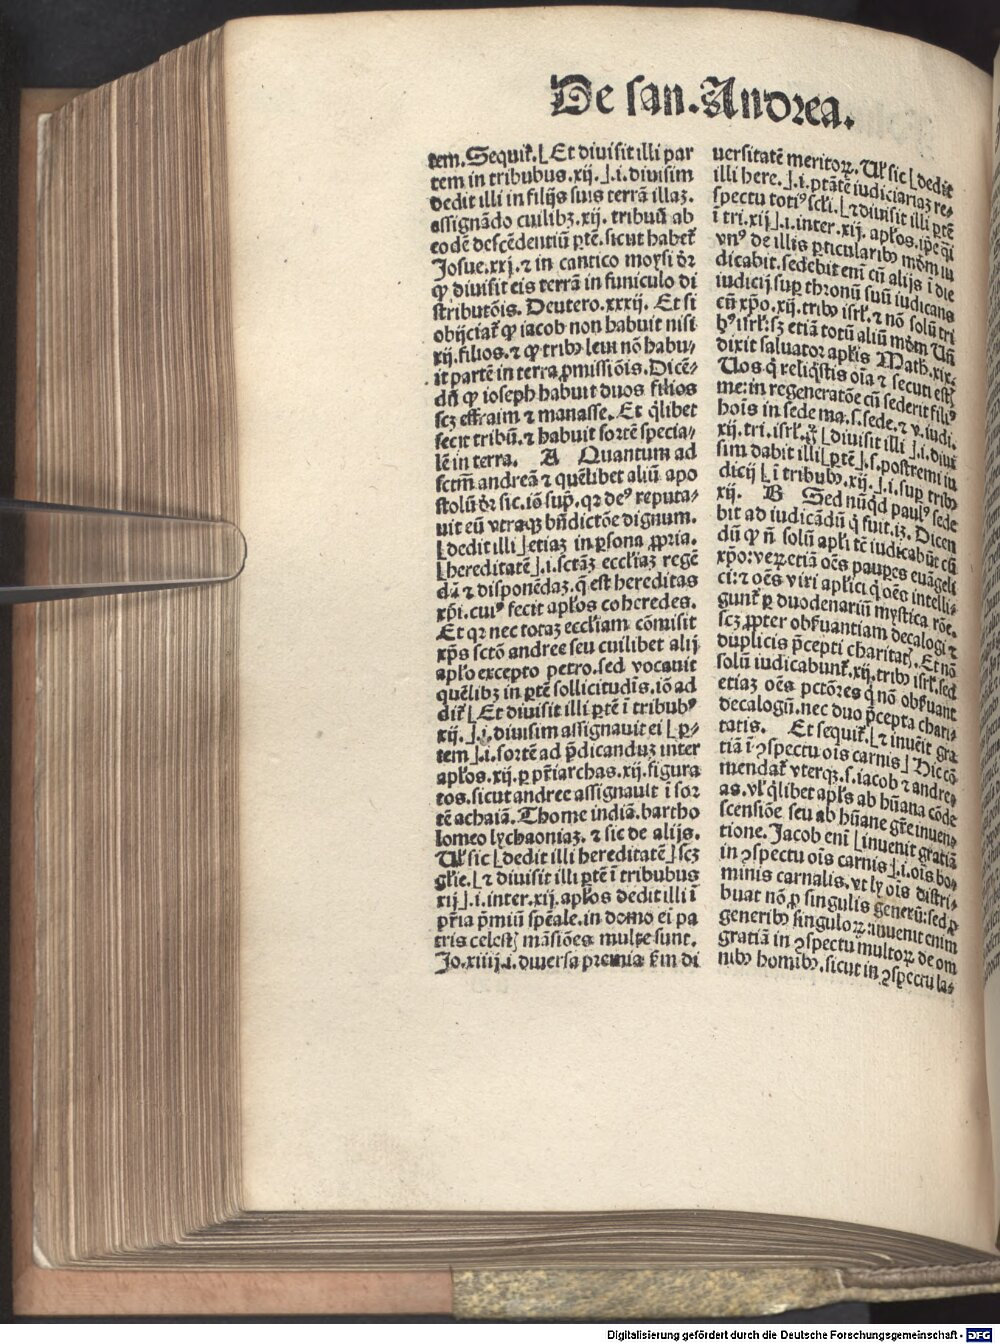 De san. Andrea.
tem. Sequit̃. [Et diuisit illi par
tem in tribubus .xij.].i. diuisim
dedit illi in filijs suis terrā illaꝫ.
assignādo cuilibꝫ .xij. tribuū ab
eodē descēdentiū ꝑtē. sicut habet̃
Josue .xxj. ⁊ in cantico moysi ðr
ꝙ diuisit eis terrā in funiculo di
stributōis. Deutero. xxxij. Et si
obijciat̃ ꝙ iacob non habuit nisi
xij. filios. ⁊ ꝙ tribꝰ leui nō habu⸗
it partē in terra ꝓmissiōis. Dicē⸗
dū ꝙ ioseph habuit duos filios
scꝫ effraim ⁊ manasse. Et q̇libet
fecit tribū. ⁊ habuit sortē specia⸗
lē in terra. A Quantum ad
sctm̄ andreā ⁊ quēlibet aliū apo
stolū ðr sic. iō sup̄. qꝛ deꝰ reputa⸗
uit eū vtraqꝫ bn̄dictōe dignum.
[dedit illi] etiaꝫ in ꝑsona ꝓpria.
[hereditatē].i. sctāꝫ eccl̄iaꝫ regē
dā ⁊ disponēdaꝫ. q̄ est hereditas
xp̄i. cuiꝰ fecit apl̄os coheredes.
Et qꝛ nec totaꝫ eccl̄iam cōmisit
xp̄s sctō andree seu cuilibet alij
apl̄o excepto petro. sed vocauit
quēlibꝫ in ꝑtē sollicitudīs. iō ad
dit̃ [Et diuisit illi ꝑtē ī tribubꝰ
xij.].i. diuisim assignauit ei [ꝑ⸗
tem].i. sortē ad p̄dicanduꝫ inter
apl̄os .xij. ꝑ pr̄iarchas .xij. figura
tos. sicut andree assignauit ī sor
tē achaiā. Thome indiā. bartho
lomeo lychaoniaꝫ. ⁊ sic de alijs.
Ul̓ sic [dedit illi hereditatē] scꝫ
gl̄ie. [⁊ diuisit illi ꝑtē ī tribubus
xij].i. inter .xij. apl̄os dedit illi ī
pr̄ia p̄miū spēale. in domo ei pa
tris celestꝭ māsiōes multe sunt.
Jo. xiiij. i. diuersa premia ẜm di
uersitatē meritoꝝ. Ul̓ sic [dedit
illi here.].i. ptātē iudiciariaꝫ re⸗
spectu totiꝰ scl̄i. [⁊ diuisit illi ꝑtē
ī tri. xij].i. inter .xij. apl̄os. ip̄e q̄i
vnꝰ de illis ꝑticularibꝰ mōm iu
dicabit. sedebit eni cū alijs ī die
iudicij sup̱ thronū suū iudicans
cū xp̄o .xij. tribꝰ isrl̄. ⁊ nō solū tri
bꝰ isrl̄: sꝫ etiā totū aliū mōm Uñ
dixit saluator apl̄is Math. xix.
Uos q̇ reliq̇stis oīa ⁊ secuti estꝭ
me: in regeneratōe cū sederit filiꝰ
hoīs in sede ma. s. sede. ⁊ v. iudi.
xij. tri. isrl̄. g̊ [diuisit illi].i. diui
sim dabit illi [ꝑtē].s. postremi iu
dicij [ī tribubꝰ .xij.].i. sup̱ tribꝰ
xij. B Sed nūqd̓ paulꝰ sede
bit ad iudicādū q̇ fuit .iꝫ. Dicen
dū ꝙ ñ solū apl̓i tē iudicabūt cū
xp̄o: veꝝ etiā oēs pauꝑes euāgeli
ci: ⁊ oēs viri apl̓ici q̇ oēs intelli⸗
gunt̃ ꝑ duodenariū mystica rōe.
scꝫ ꝓpter obẜuantiam decalogi ⁊
duplicis p̄cepti charitatꝭ. Et nō
solū iudicabunt̃ .xij. tribꝰ isrl̄. sed
etiaꝫ oēs pctōres q̇ nō obẜuant
decalogū. nec duo p̄cepta chari⸗
tatis. Et sequit̃. [⁊ inuēit gra
tiā ī ꝯspectu oīs carnis] Dic cō
mendat̃ vterqꝫ .s. iacob ⁊ andre⸗
as. vl̓ q̇libet apl̓s ab hūana cōde
scensiōe seu ab hūane gr̄e inuen⸗
tione. Jacob eni [inuenit gratiā
in ꝯspectu oīs carnis].i. oīs ho⸗
minis carnalis. vt ly oīs distri⸗
buat nō ꝓ singulis generū: sed ꝓ
generibꝰ singuloꝝ: inuenit enim
gratiā in ꝯspectu multoꝝ de om
nibꝰ homībꝰ. sicut in ꝯspectu la⸗
Digitalisierung gefördert durch die Deutsche Forschungsgemeinschaft - DFG